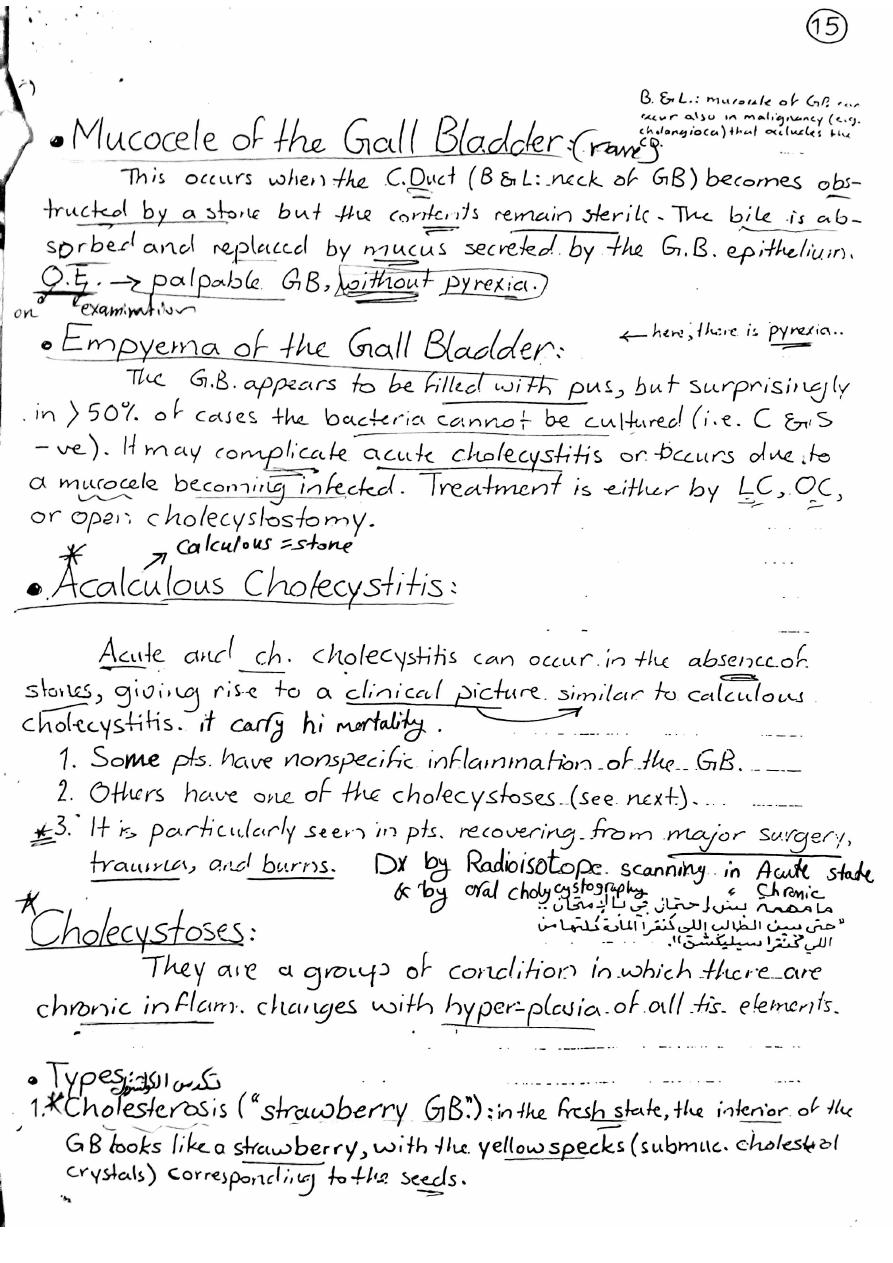 15
B. & L.: mucocele of GB can
occur also in malignancy (e.g.
cholangioca) that occludes the
• Mucocele of the Gall Bladder: (rare)
This occurs when the C. Duct (B & L: neck of GB) becomes obs-
tructed by a stone but the contents remain sterile. The bile is ab-
sorbed and replaced by mucus secreted by the G.B. epithelium.
O.E. → palpable GB, (without pyrexia.)
on examination
• Empyema of the Gall Bladder:
← here, there is pyrexia..
The G.B. appears to be filled with pus, but surprisingly
in > 50% of cases the bacteria cannot be cultured (i.e. C & S
-ve). It may complicate acute cholecystitis or occurs due to
a mucocele becoming infected. Treatment is either by LC, OC,
or open cholecystostomy.
calculous = stone
• Acalculous Cholecystitis:
Acute and ch. cholecystitis can occur in the absence of
stones, giving rise to a clinical picture similar to calculous
cholecystitis. it carry hi mortality.
1. Some pts. have nonspecific inflammation of the GB.
2. Others have one of the cholecystoses (see next).
*3. It is particularly seen in pts. recovering from major surgery,
trauma, and burns. Dx by Radioisotope scanning in Acute state
& by oral cholycystography Chronic
* Cholecystoses:
They are a group of condition in which there are
chronic inflam. changes with hyper-plasia of all tis. elements.
• Types:
1.* Cholesterosis ("strawberry GB"): in the fresh state, the interior of the
GB looks like a strawberry, with the yellow specks (submuc. cholesterol
crystals) corresponding to the seeds.